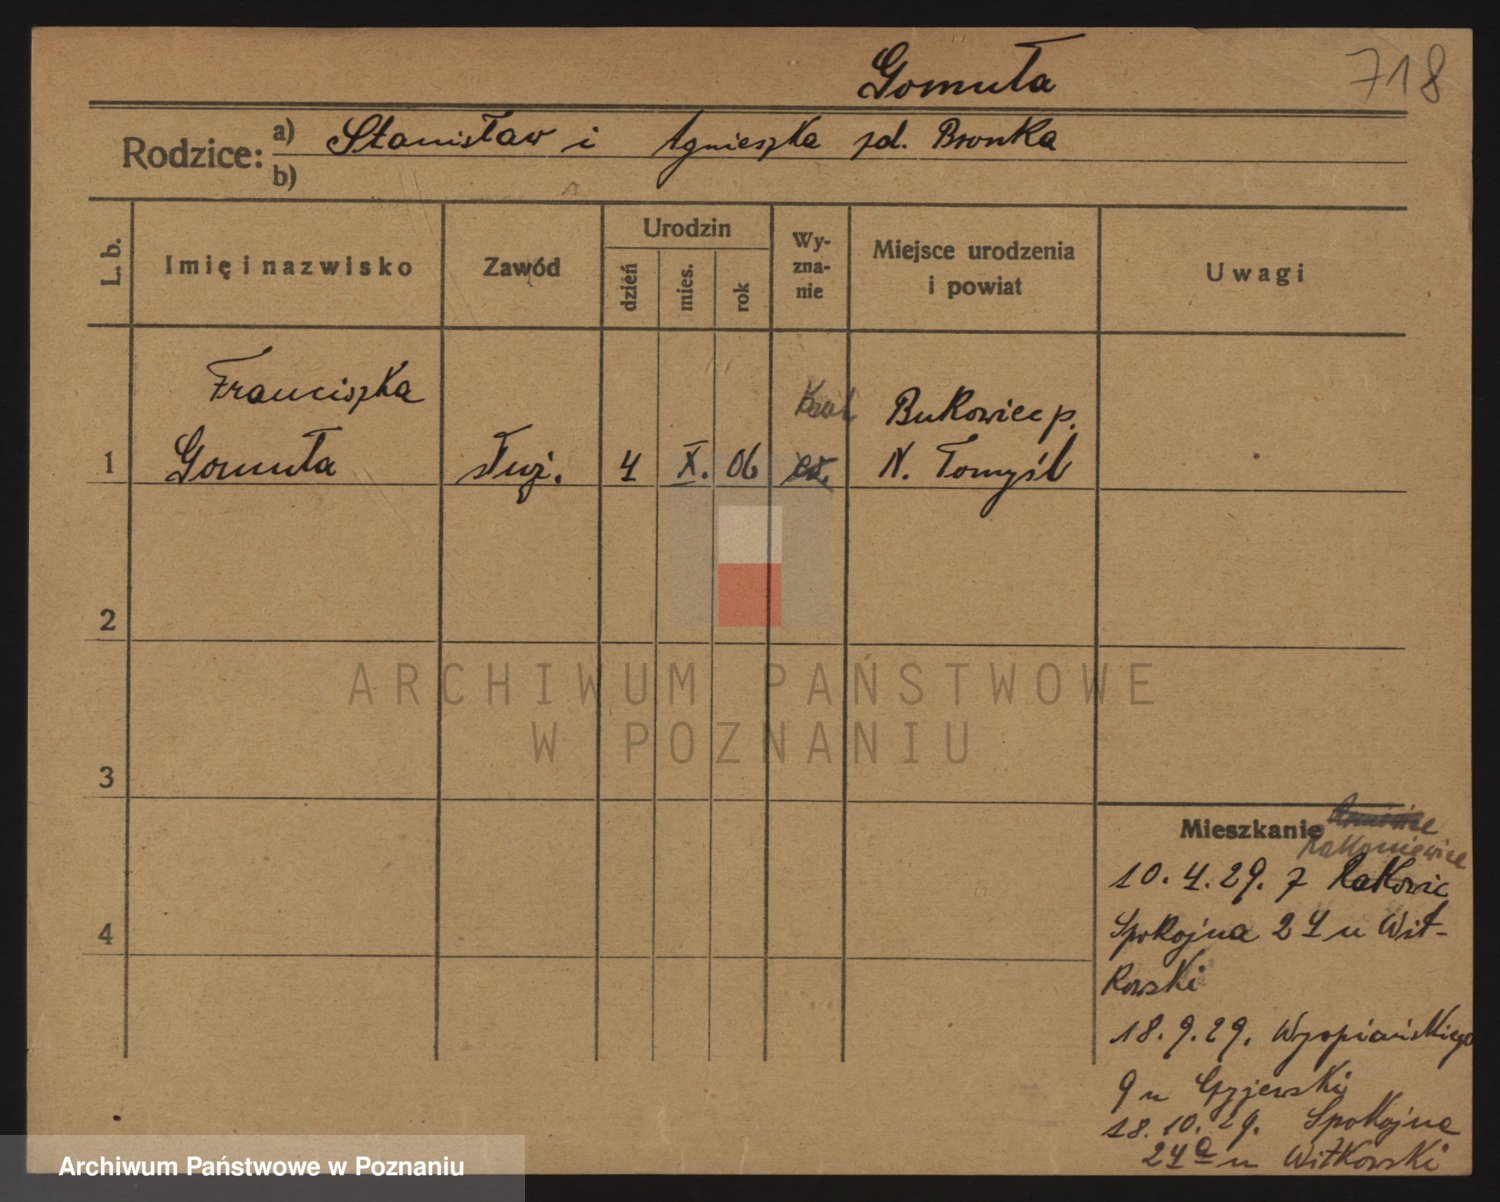 Gomuła 718
Rodzice: a) Stanisław i Agnieszka zd. Bronka
b)
L. b. Imię i nazwisko Zawód Urodzin dzień mies. rok Wy-zna-nie Miejsce urodzenia i powiat Uwagi
Franciszka Kat Bukowiec p.
1 Gomuła służ. 4 X. 06 ew. N. Tomyśl
2
ARCHIWUM PAŃSTWOWE
W POZNANIU
3
Mieszkanie
Rakoniewice
10.4.29. z Rakowic
4
Spokojna 24 u Wit-
kowski
18.9.29. Wyspiańskiego
9 u
18.10.29. Spokojna
24a u Witkowski
Archiwum Państwowe w Poznaniu